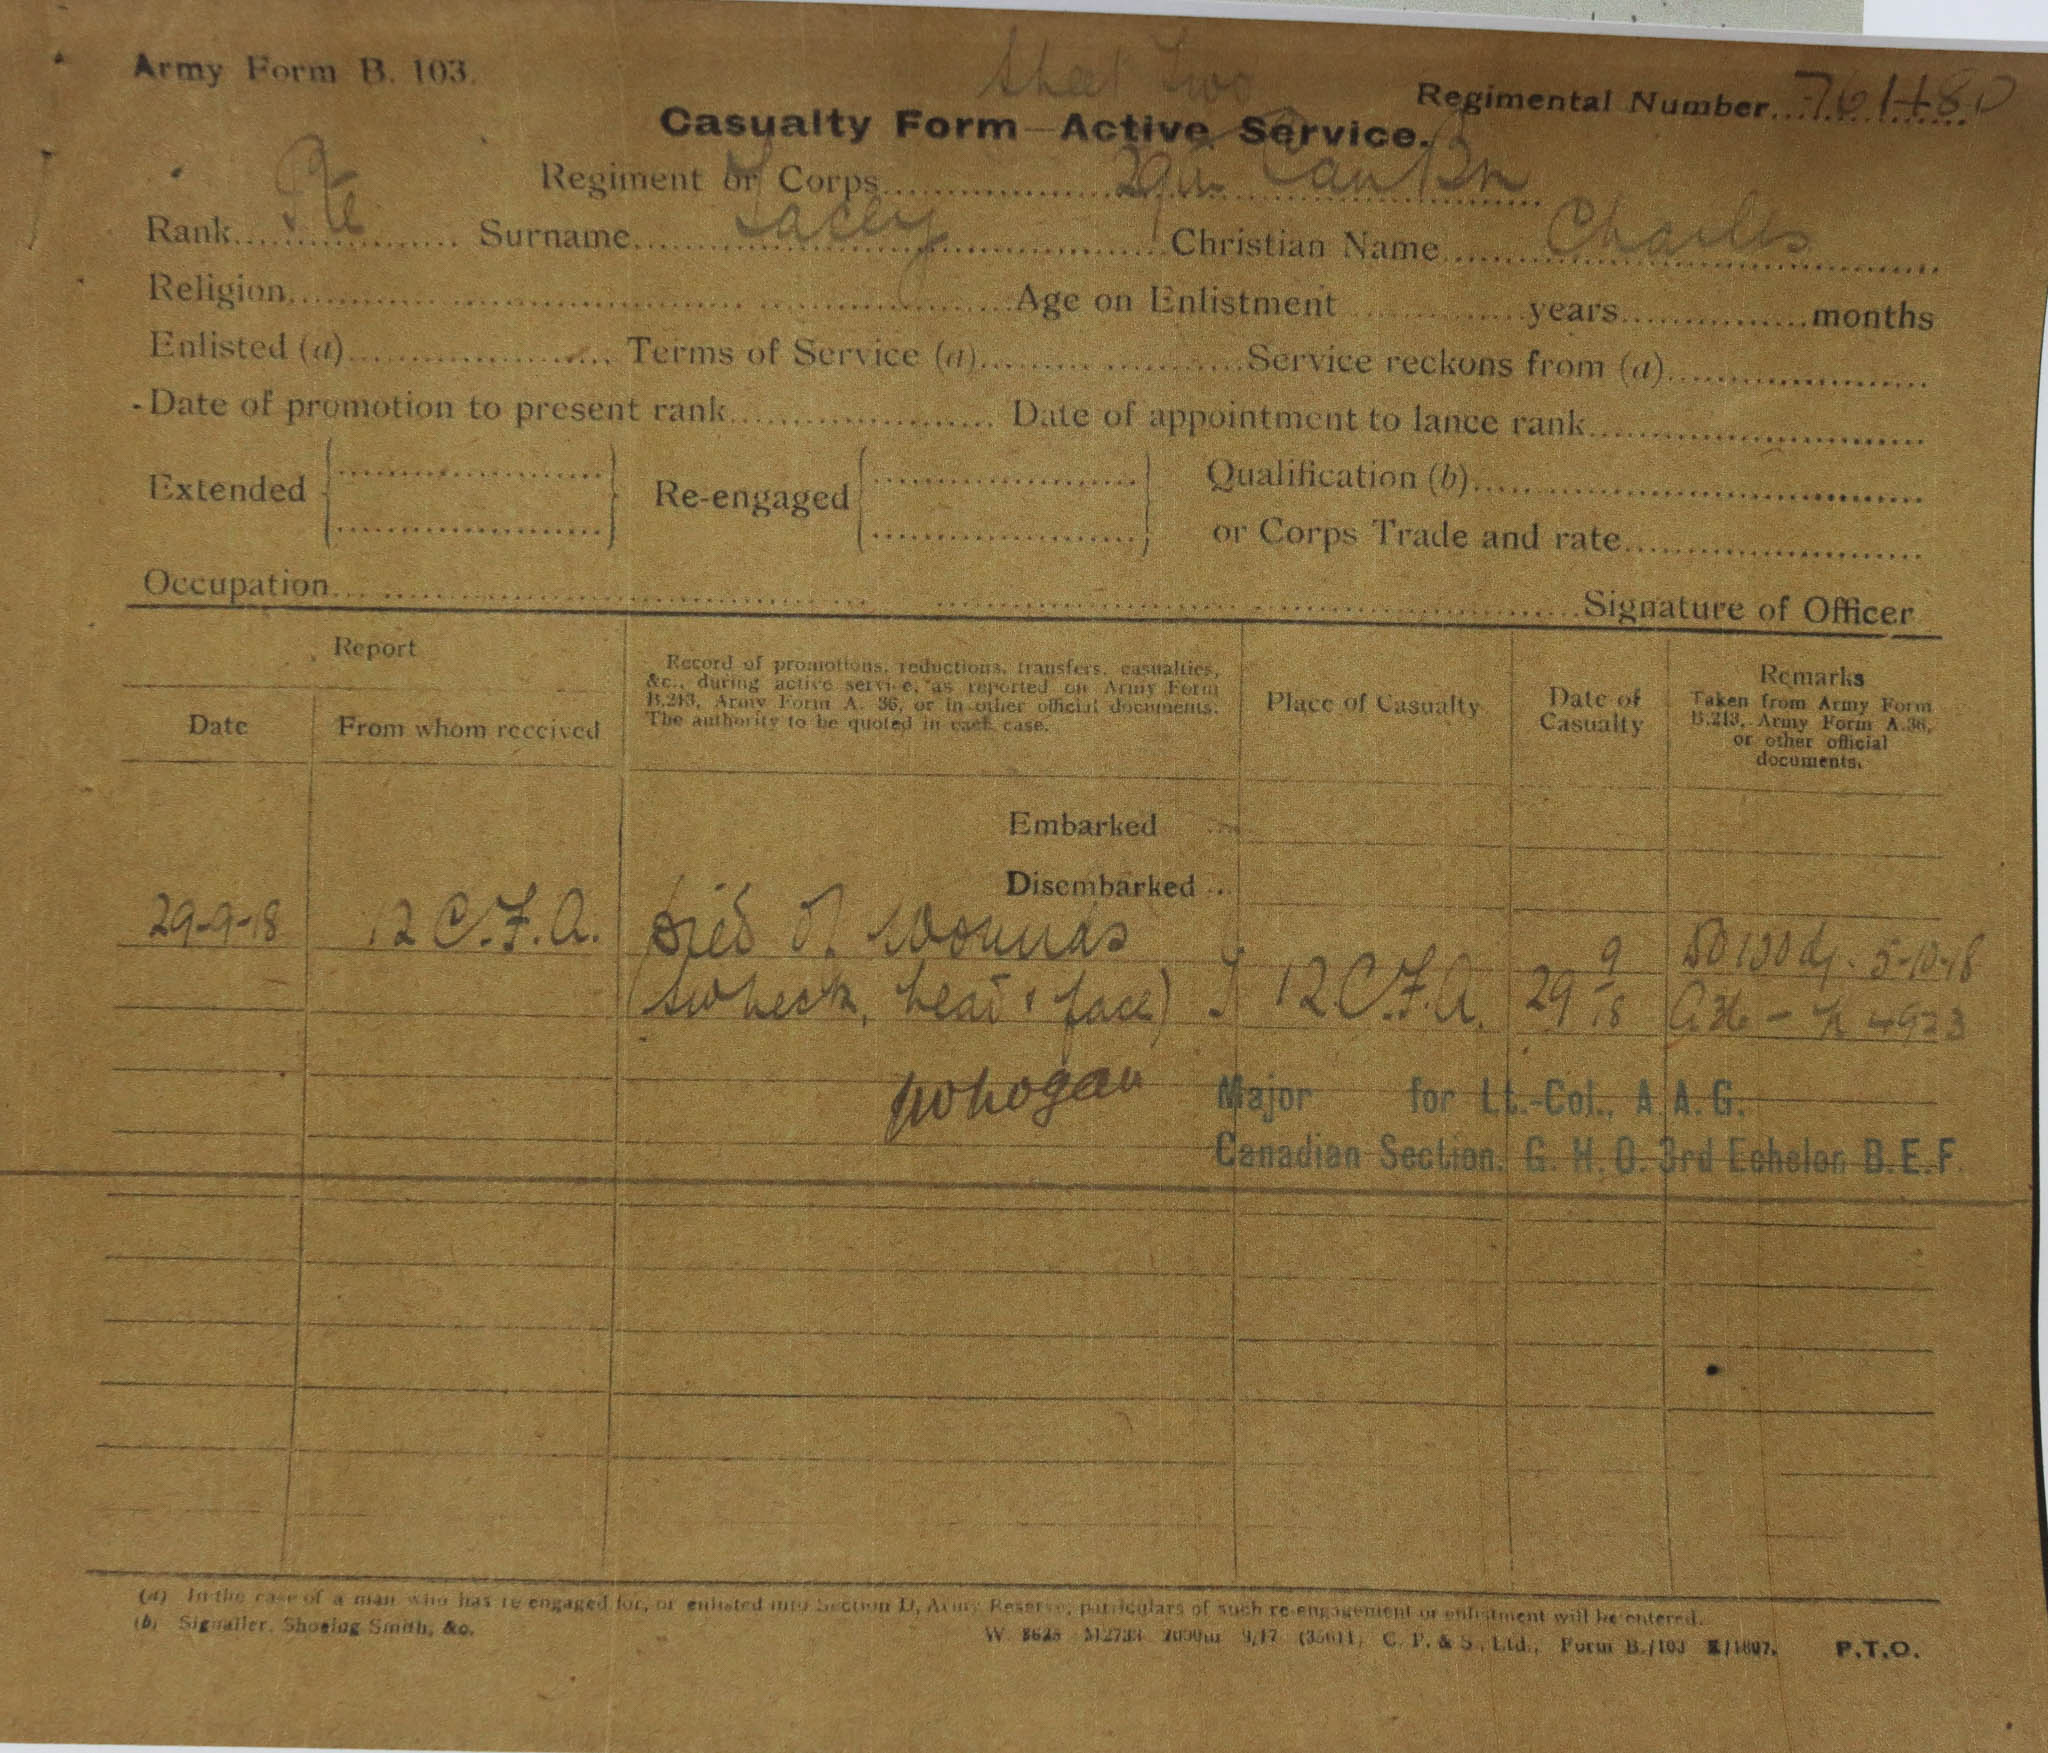 Army Form B. 103.
Sheet Two
Regimental Number 761480
Casualty Form—Active Service.
Regiment or Corps 29th Can Bn
Rank Pte Surname Lacey Christian Name Charles
Religion Age on Enlistment years months
Enlisted (a) Terms of Service (a) Service reckons from (a)
Date of promotion to present rank Date of appointment to lance rank
Extended Re-engaged Qualification (b)
or Corps Trade and rate
Occupation Signature of Officer
Report
Date From whom received
Record of promotions, reductions, transfers, casualties,
&c., during active service, as reported on Army Form
B.213, Army Form A. 36, or in other official documents.
The authority to be quoted in each case.
Place of Casualty
Date of
Casualty
Remarks
Taken from Army Form
B.213, Army Form A.36,
or other official
documents.
Embarked
Disembarked
29-9-18 12 C.F.A. Died of Wounds
(SW neck, head & face) 12 C.F.A. 29 9/18 5-10-18
A36 4923
Major for Lt.-Col., A.A.G.
Canadian Section. G. H. Q. 3rd Echelon B.E.F.
(a) In the case of a man who has re-engaged for, or enlisted into Section D, Army Reserve, particulars of such re-engagement or enlistment will be entered.
(b) Signaller, Shoeing Smith, &c.
9/17 C. P. & S., Ltd., Form B./103 P.T.O.